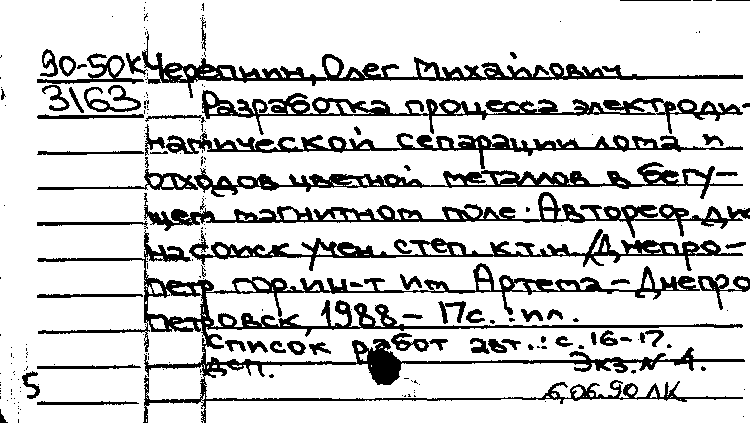 90-50К Черепнин, Олег Михайлович.
3163 Разработка процесса электроди-
намической сепарации лома и
отходов цветной металлов в бегу-
щем магнитном поле: Автореф. дис
на соиск учен. степ. к.т.н /Днепро-
петр. гор. ин-т им Артема. - Днепро
петровск, 1988. - 17с. : ил.
Список работ авт.: с. 16-17.
ДСП. Экз. N 4.
5 6,06.90 ЛК